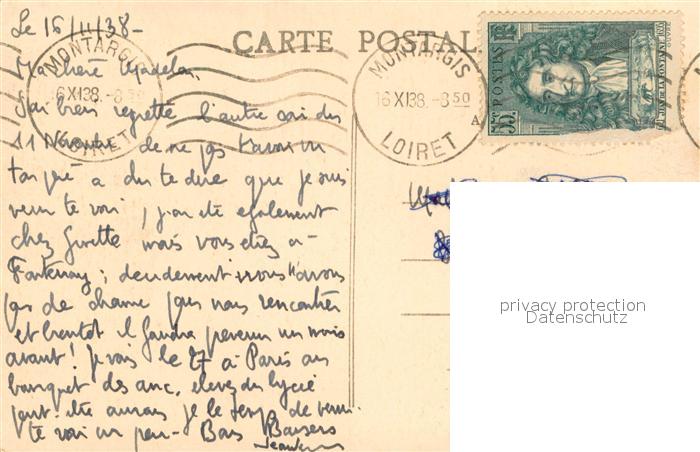 Le 16/11/38-
CARTE POSTALE
MONTARGIS
16 XI 38. -8 50
LOIRET
MONTARGIS
16 XI 38. -8 50
LOIRET
POSTES
55c
JEAN DE LA FONTAINE
Ma chère Madelon,
J'ai bien regretté l'autre soir du
11 Novembre de ne pas t'avoir vu
a du te dire que je suis
venu te voir, j'ai été également
chez Ginette mais vous étiez à
Fontenay; décidément nous n'avons
pas de chance pour nous rencontrer
et bientôt il faudra prévenir un mois
avant! Je vais le 27 à Paris au
banquet des anc. élèves du lycée
peut-être aurais je le temps de venir
te voir un peu - Bons Baisers
privacy protection
Datenschutz